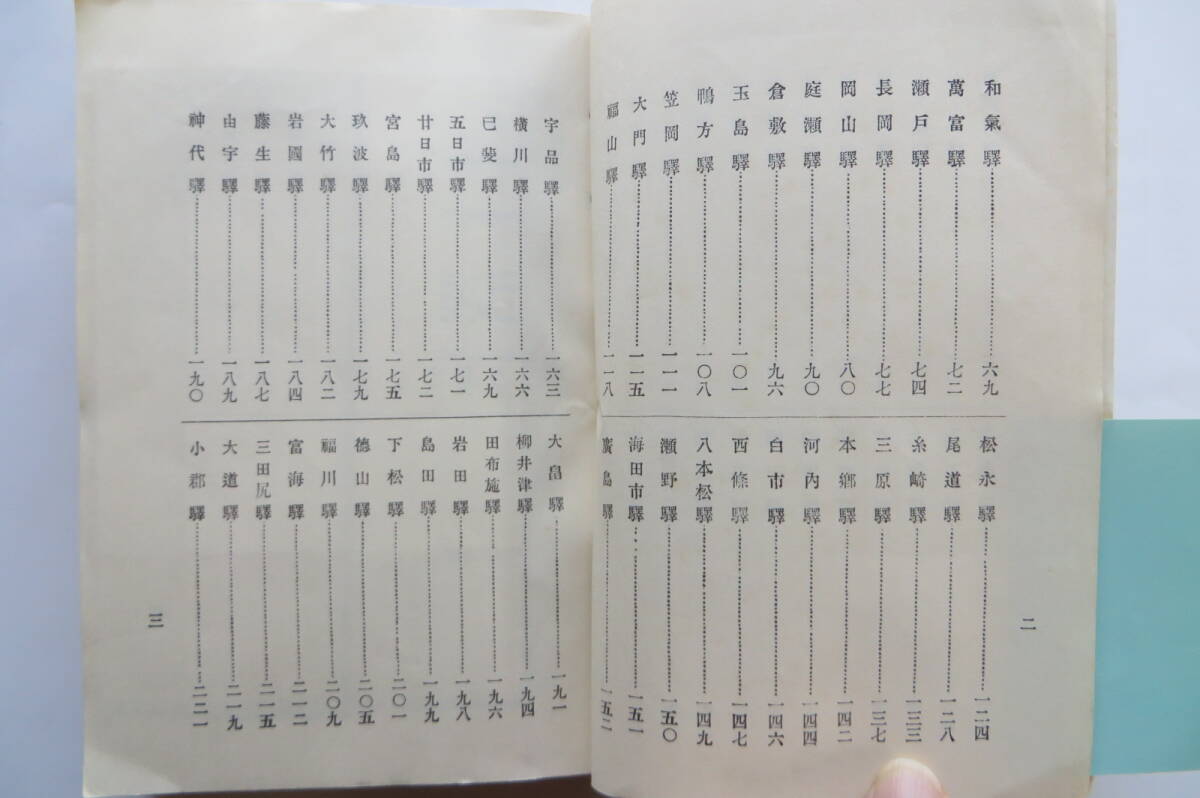 和氣驛……六九
萬富驛……七二
瀨戶驛……七四
長岡驛……七七
岡山驛……八〇
庭瀨驛……九〇
倉敷驛……九六
玉島驛……一〇一
鴨方驛……一〇八
笠岡驛……一一一
大門驛……一一五
福山驛……一一八
松永驛……一二四
尾道驛……一二八
糸崎驛……一三三
三原驛……一三七
本鄕驛……一四二
河內驛……一四四
白市驛……一四六
西條驛……一四七
八本松驛……一四九
瀨野驛……一五〇
海田市驛……一五一
廣島驛……一五二
二
宇品驛……一六三
橫川驛……一六六
己斐驛……一六九
五日市驛……一七一
廿日市驛……一七二
宮島驛……一七五
玖波驛……一七九
大竹驛……一八二
岩國驛……一八四
藤生驛……一八七
由宇驛……一八九
神代驛……一九〇
大畠驛……一九一
柳井津驛……一九四
田布施驛……一九六
岩田驛……一九八
島田驛……一九九
下松驛……二〇一
德山驛……二〇五
福川驛……二〇九
富海驛……二一二
三田尻驛……二一五
大道驛……二一九
小郡驛……二二一
三